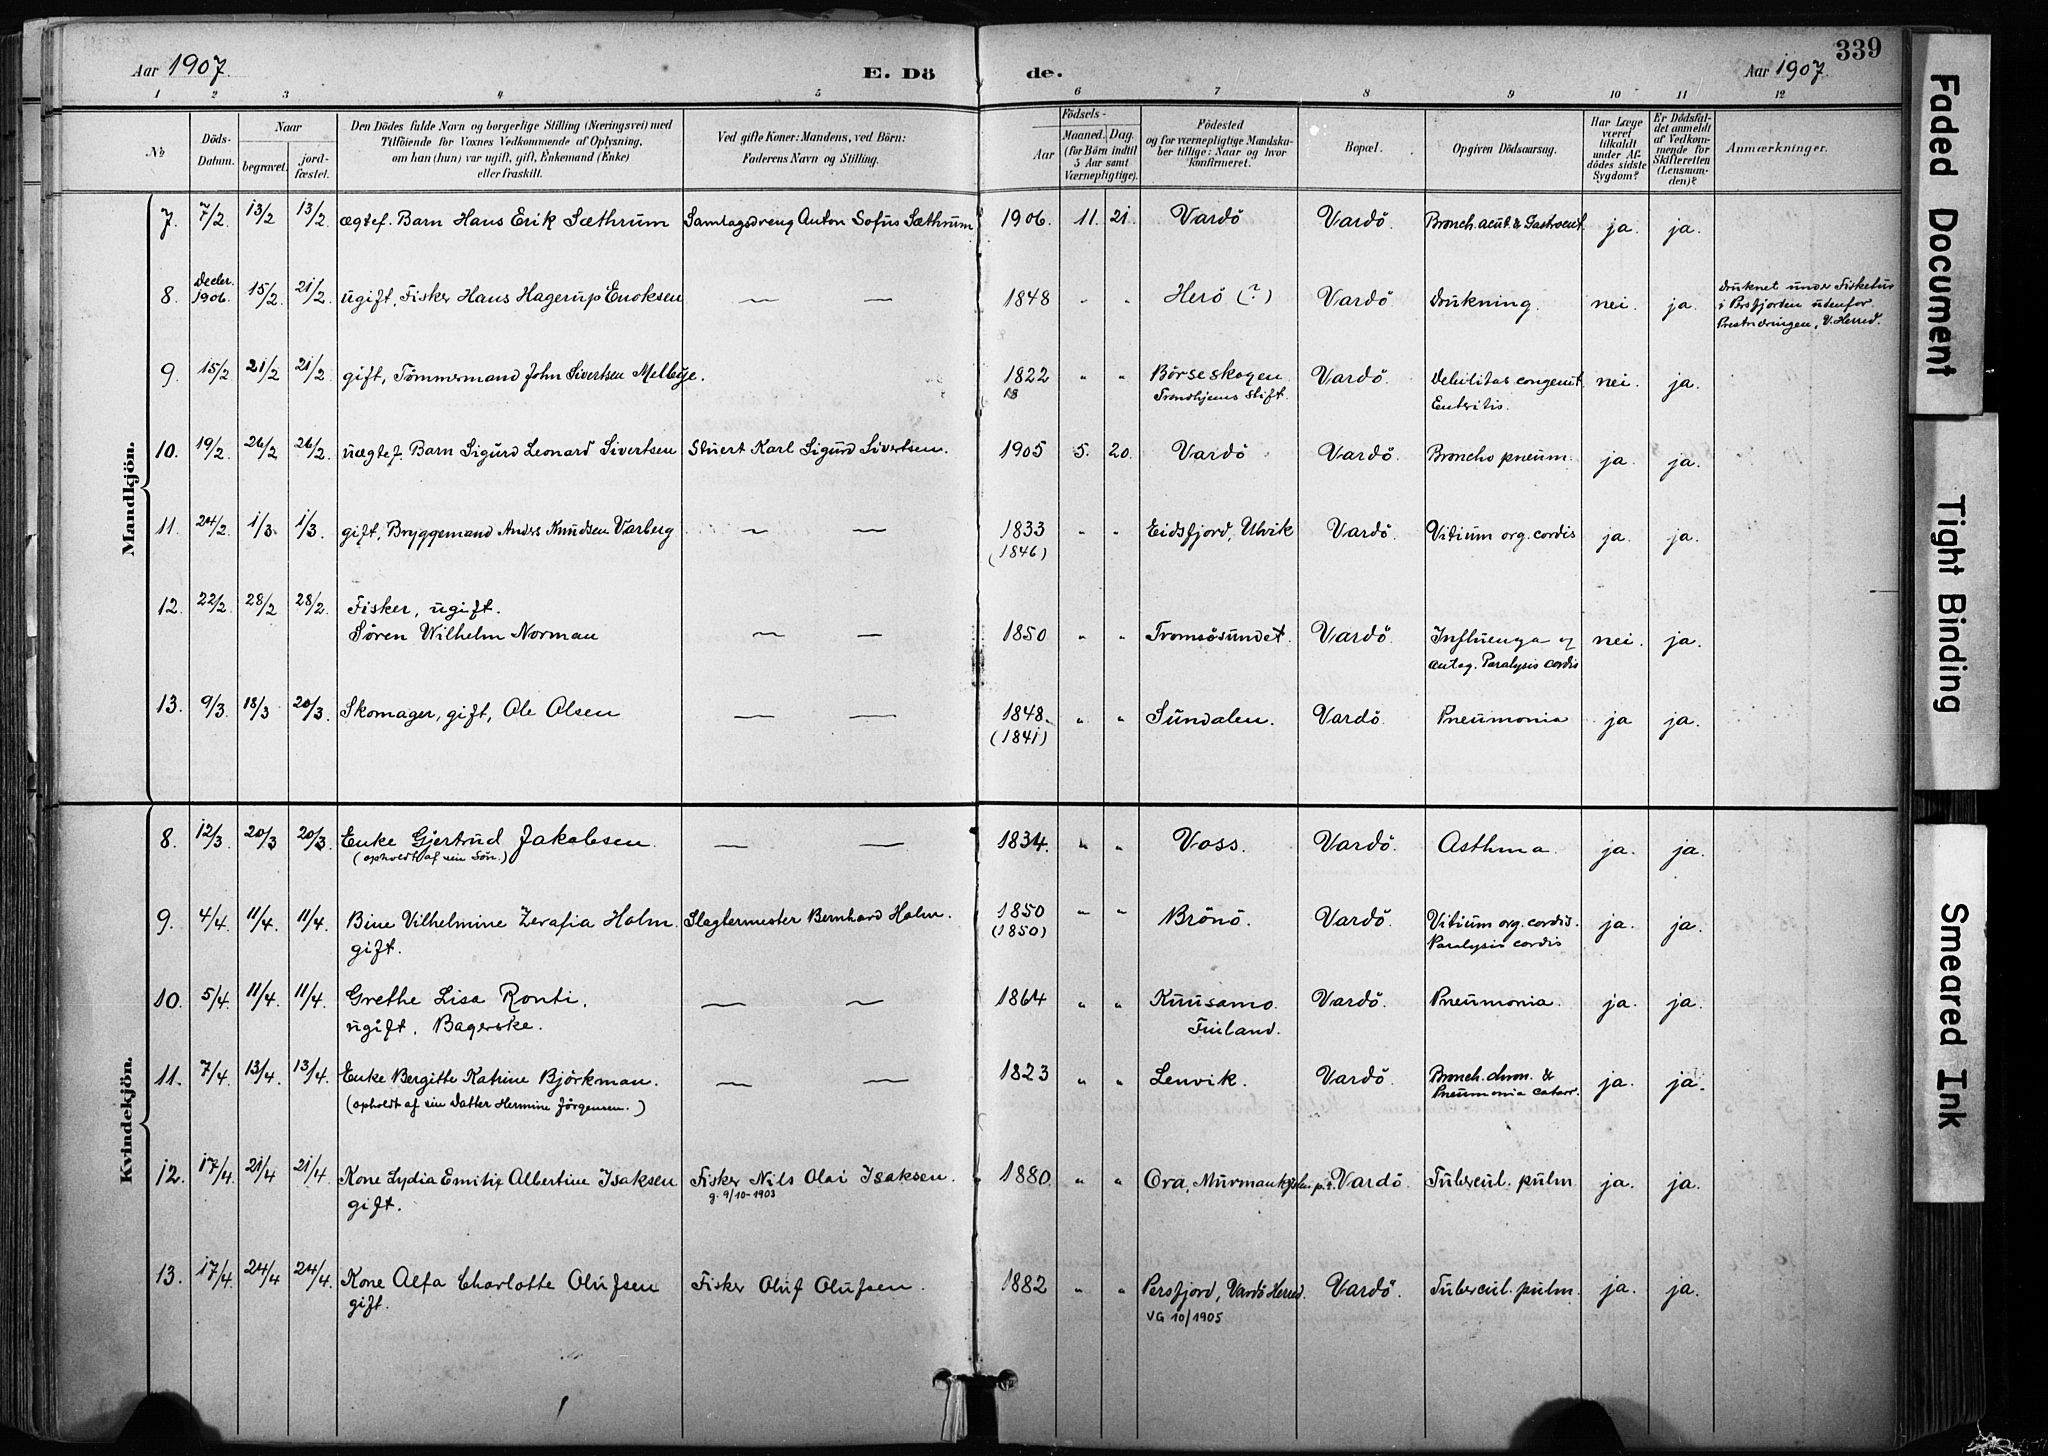 Aar 1907.
E. Dö
de.
Aar 1907.
339
1 2 3 4 5 6 7 8 9 10 11 12
No
Döds-
Datum.
Naar
begravet.
jord-
fæstet.
Den Dödes fulde Navn og borgerlige Stilling (Næringsvei) med
Tilföiende for Voxnes Vedkommende af Oplysning,
om han (hun) var ugift, gift, Enkemand (Enke)
eller fraskilt.
Ved gifte Koner: Mandens, ved Börn:
Faderens Navn og Stilling.
Födsels-
Aar
Maaned. Dag.
(for Börn indtil
5 Aar samt
Værnepligtige).
Födested
og for værnepligtige Mandska-
ber tillige: Naar og hvor
konfirmeret.
Bopæl.
Opgiven Dödsaarsag.
Har Læge
været
tilkaldt
under Af-
dödes sidste
Sygdom?
Er Dödsfal-
det anmeldt
af Vedkom-
mende for
Skifteretten
(Lensman-
den)?
Anmærkninger.
Mandkjön.
7. 7/2 13/2 13/2. ægtef. Barn Hans Erik Sæthrum Samlagsdreng Anton Sofus Sæthrum 1906. 11. 21. Vardö Vardö. Bronch. acut. & Gastroent. ja. ja.
8. Decbr. 1906. 15/2. 21/2 ugift, Fisker Hans Hagerup Enoksen — — 1848 " " Herö (?) Vardö. Drukning. nei. ja. Druknet under Fisketur
i Persfjorden udenfor
Prestnæringen, V. Herred.
9. 15/2 21/2 21/2 gift, Tömmermand John Sivertsen Mellbye. 1822 " " Börseskogen Vardö. Debilitas congenit. nei. ja.
18 Trondhjems Stift. Enteritis.
10. 19/2. 26/2 26/2. uægtef. Barn Sigurd Leonard Sivertsen Stuert Karl Sigurd Sivertsen. 1905 5. 20. Vardö Vardö. Broncho pneum. ja. ja.
11. 24/2 1/3. 1/3. gift, Bryggemand Anders Knudsen Varberg — — 1833 " " Eidsfjord, Ulvik Vardö. Vitium org. cordis ja. ja.
(1846)
12. 22/2. 28/2 28/2. Fisker, ugift.
Sören Wilhelm Norman — — 1850 " " Tromsösundet. Vardö. Influenza og nei. ja.
antag. Paralysis cordis
13. 9/3. 18/3 20/3. Skomager, gift, Ole Olsen — — 1848. " " Sundalen. Vardö. Pneumonia ja ja.
(1841)
Kvindekjön.
8. 12/3. 20/3 20/3. Enke Gjertrud Jakobsen. — — 1834. " " Voss. Vardö. Asthma. ja. ja.
(opholdt af sin Sön.)
9. 4/4. 11/4. 11/4. Bine Vilhelmine Zerafia Holm Slagtermester Bernhard Holm. 1850 " " Brönö. Vardö. Vitium org. cordis. ja. ja.
gift. (1850) Paralysis cordis
10. 5/4. 11/4. 11/4. Grethe Lisa Ronti, — — 1864 " " Kuusamo. Vardö. Pneumonia. ja. ja.
ugift. Bagerske. Finland.
11. 7/4. 13/4. 13/4. Enke Bergitte Katrine Björkman. — — 1823 " " Lenvik. Vardö. Bronch. chron. & ja. ja.
(opholdt af sin Datter Hermine Jörgensen.) Pneumonia catarr.
12. 17/4. 21/4 21/4. Kone Lydia Emilie Albertine Isaksen Fisker Nils Olai Isaksen. 1880. " " Ora, Murmankysten p.t. Vardö. Tubercul. pulm. ja. ja.
gift. g. 9/10-1903
13. 17/4. 24/4 24/4. Kone Alfa Charlotte Olufsen Fisker Oluf Olufsen. 1882 " " Persfjord, Vardö Herred. Vardö. Tubercul. pulm. ja. ja.
gift. VG 10/1905
Faded Document
Tight Binding
Smeared Ink